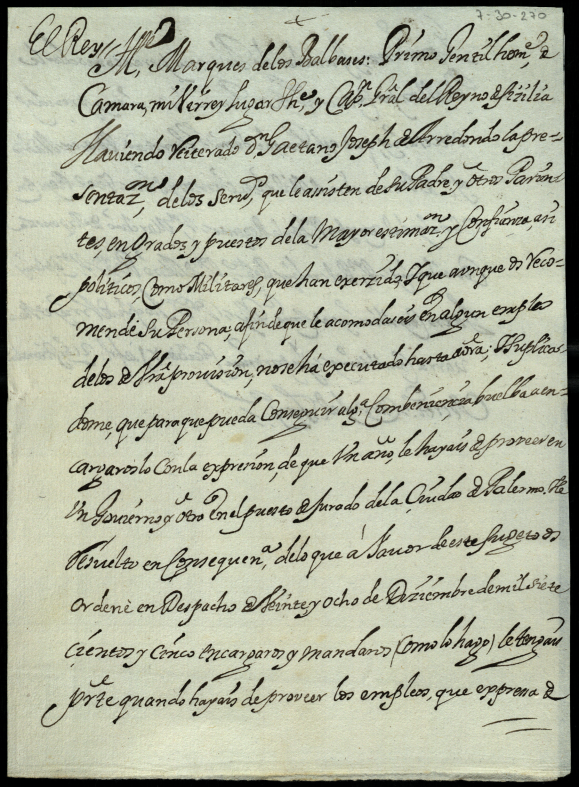 7-30-270
El Rey
Marques de los Balbases: Primo Gentilhome, de
Camara, mi Virrey Lugar The, y Capn Gral del Reyno de Sizilia
Haviendo reiterado Dn Gaetano Joseph de Arredondo la pre-
sentazn, de los servs, que le asisten de su Padre, y otros Parien-
tes, en Grados, y puestos de la Mayor estimazn, y Confianza, asi
politicos, Como Militares, que han exerzido, Y que aunque os reco-
mendé su Persona: afin de que le acomodaseis en algun empleo
delos de Vra provision, no se há executado hasta aora; Y suplican-
dome, que para que pueda Conseguir alga Combeniencia buelba a en-
cargaroslo Con la expresion, de que Un año, le hayais de proveer en
Un Govierno, y otro en el puesto de Jurado de la Ciudad de Palermo, He
resuelto en Consequena, de lo que á favor de este sugeto os
ordené en Despacho de Veinte y ocho de Diziembre de mil siete
cientos y Cinco encargaros, y mandaros (como lo hago) le tengais
prte quando hayais de proveer los empleos, que expresa de